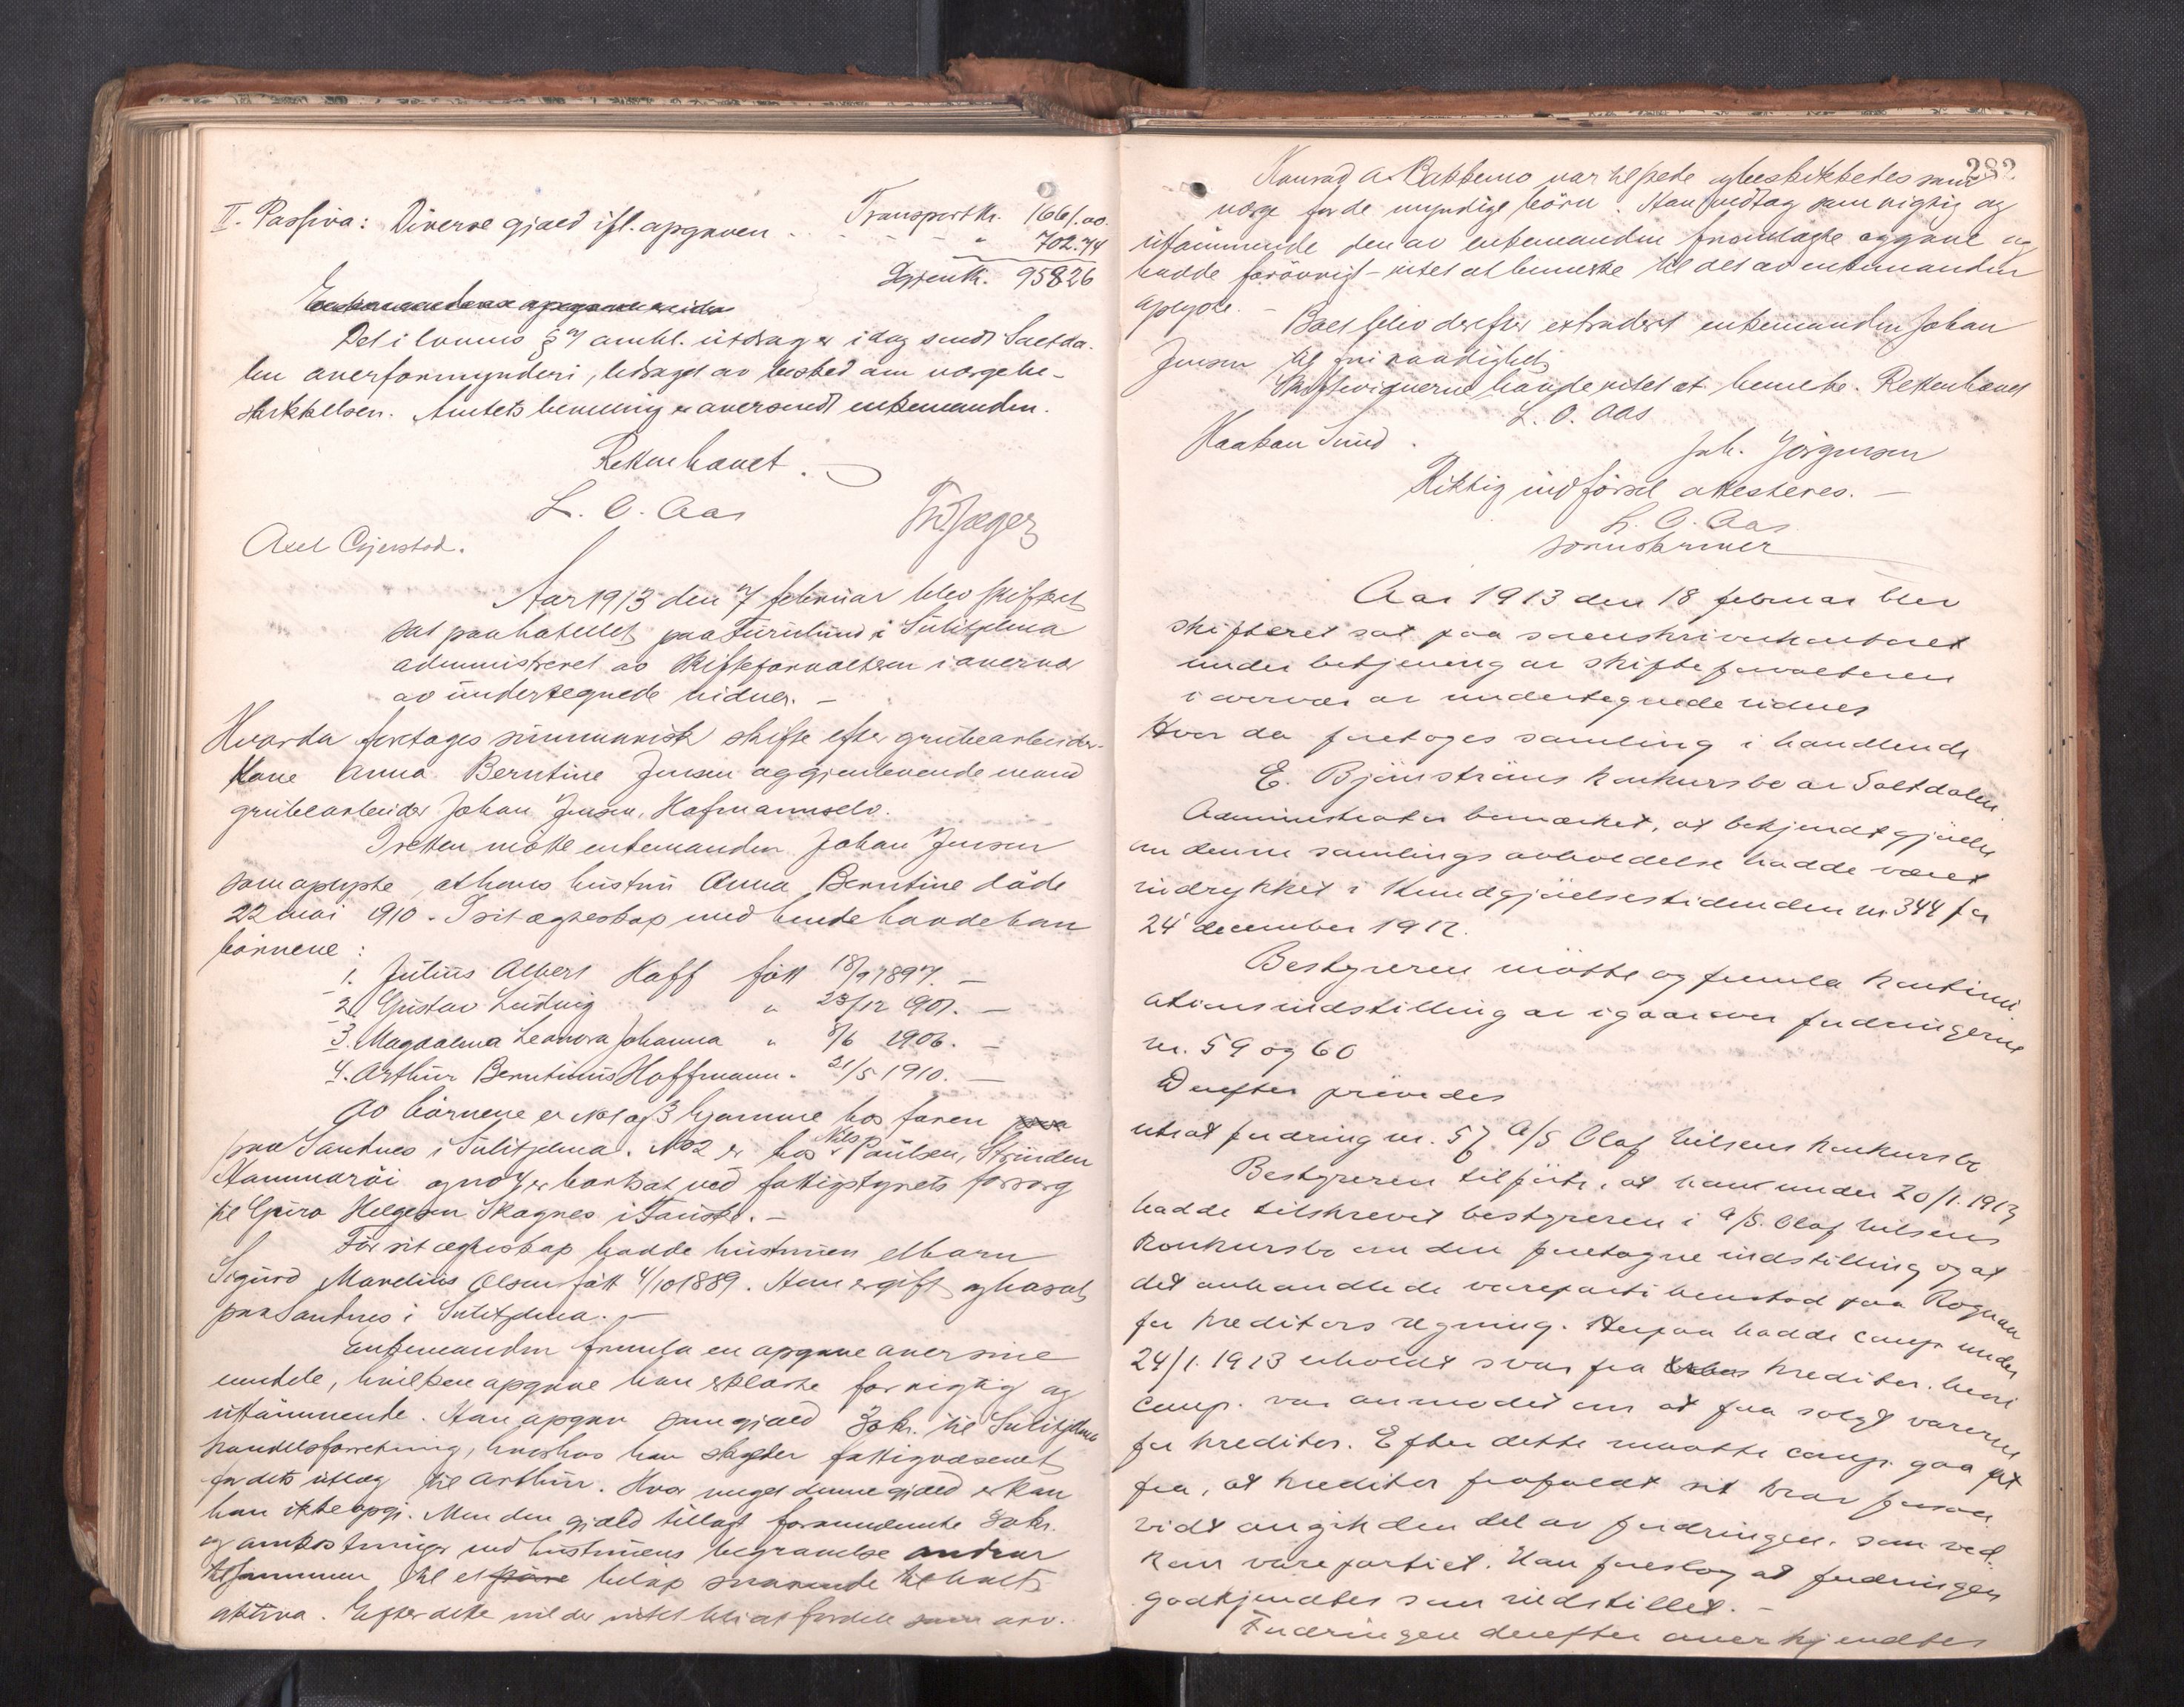 Transport kr. 1661.00.
II. Passiva: Diverse gjæld ifl. opgaven . . - - - " 702.74
Igjen kr. 958 26
Enkemandens opgave
Det i lovens § 7 omhl. utdrag er idag sendt Saltda-
len overformynderi, ledsaget av besked om vergebe-
skikkelsen. Amtets bevilling er oversendt enkemanden.
Retten hævet.
L. O. Aas
Axel Gjerstad.
Aar 1913 den 7 februar blev skifteret
sat paa hotellet paa Furulund i Sulitjelma
administreret av skifteforvalteren i overvær
av undertegnede vidner. –
Hvorda foretoges summarisk skifte efter grubearbeider-
kone Anna Berntine Jensen og gjenlevende mand
grubearbeider Johan Jensen, Hafmannselv.
I retten møtte enkemanden Johan Jensen
som oplyste, at hans hustru Anna Berntine døde
22 mai 1910. I sit egteskap med hende havde han
børnene:
1. Julius Albert Hoff født 18/9 1897. –
2. Gustav Ludvig " 23/12 1901. –
3. Magdalena Leonora Johanna " 8/6 1906. –
4. Arthur Berntinius Hoffmann. 21/5 1910. –
Av børnene er No 1 og 3 hjemme hos faren paa
paa Sandnes i Sulitjelma. No 2 er hos Nils Paulsen, Strinden
Hammarøi og no 4 er bortsat ved fattigstyrets forsorg
til Guro Helgesen Skagnes i Fauske. –
Før sit egteskap hadde hustruen et barn
Sigurd Marelius Olsen født 4/10 1889. Han er gift og bosat
paa Sandnes i Sulitjelma. –
Enkemanden fremla en opgave over sine
eiendele, hvilken opgave han erklærte for rigtig og
uttømmende. Han opgav som gjæld 30 kr. til Sulitjelma
handelsforretning, hvorhos han skylder fattigvæsenet
for dets utlæg til Arthur. Hvor meget denne gjæld er kan
han ikke opgi. Men den gjæld tillagt forannævnte 30 kr.
og omkostninger ved hustruens begravelse andrar
tilsammen til et større beløp svarende til boets
aktiva. Efter dette vil der intet bli at fordele som arv.
282.
Konrad A. Bakkemo var tilstede og beskikkedes som
verge for de umyndige børn. Han vedtog som rigtig og
uttømmende den av enkemanden fremlagte opgave og
hadde forøvrigt intet at bemerke til det av enkemanden
oplyste. –
Boet blev derefter extradert enkemanden Johan
Jensen til fri raadighet.
Skiftevidnerne havde intet at bemerke. Retten hævet
L. O. Aas
Haakon Sund. Joh. Jørgensen
Riktig indførsel attesteres. –
L. O. Aas
sorenskriver
Aar 1913 den 18 februar blev
skifteret sat paa sorenskriverkontoret
under betjening av skifteforvalteren
i overvær av undertegnede vidner
Hvor da foretoges samling i handlende
E. Bjørnstrøms konkursbo av Saltdalen.
Administrator bemærket, at bekjendtgjørelse
om denne samlings avholdelse hadde været
indrykket i Kundgjørelsestidenden nr. 344 for
24 december 1912.
Bestyreren møtte og fremla kontinu-
ationsindstilling av igaar over fordringerne
nr. 59 og 60
Derefter prøvedes
utsat fordring nr. 57 A/S Olaf Nilsens konkursbo
Bestyreren tilførte, at han under 20/1.1913
hadde tilskrevet bestyreren i A/S. Olaf Nilsens
Konkursbo om den foretagne indstilling og at
det omhandlede vareparti henstod paa Rognan
for kreditors regning. Herpaa hadde comp. under
24/1.1913 erholdt svar fra kreditor. hvori
comp. var anmodet om at faa solgt varerne
for kreditor. Efter dette maatte comp. gaa ut
fra, at kreditor frafaldt sit krav forsaa
vidt angik den del av fordringen, som ved-
kom varepartiet. Han foreslog at fordringen
godkjendtes som indstillet. –
Fordringen derefter anerkjendtes